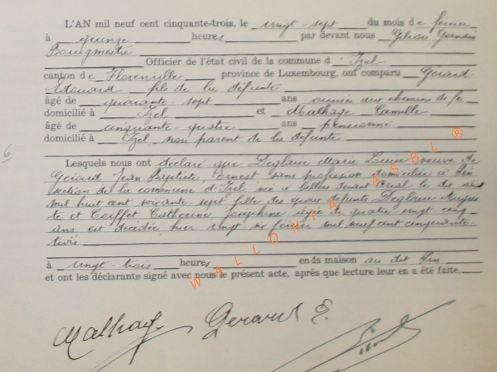 L'AN mil neuf cent cinquante-trois, le vingt-sept du mois de février
à quinze heures par devant nous
Bourgmestre
Officier de l'état civil de la commune d' Izel
canton de Florenville province de Luxembourg, ont comparu Gérard
Edouard fils de la défunte
âgé de quarante sept ans ouvrier aux chemins de fer
domicilié à Izel et Malhage Camille
âgé de cinquante quatre ans pensionné
domicilié à Izel, non parent de la défunte
Lesquels nous ont déclaré que Marie Louise veuve de
Gérard Jean Baptiste, Ernest sans profession domiciliée à
section de la commune d'Izel née à le
mil huit cent soixante sept fille des époux défunts
te et Catherine, Joséphine âgée de quatre vingt cinq
ans est décédée hier vingt six février mil neuf cent cinquante
trois
à vingt-trois heures en sa maison au dit
et ont les déclarants signé avec nous le présent acte, après que lecture leur en a été faite.
Malhage Gerard E.
WALLONIA ASBL ®